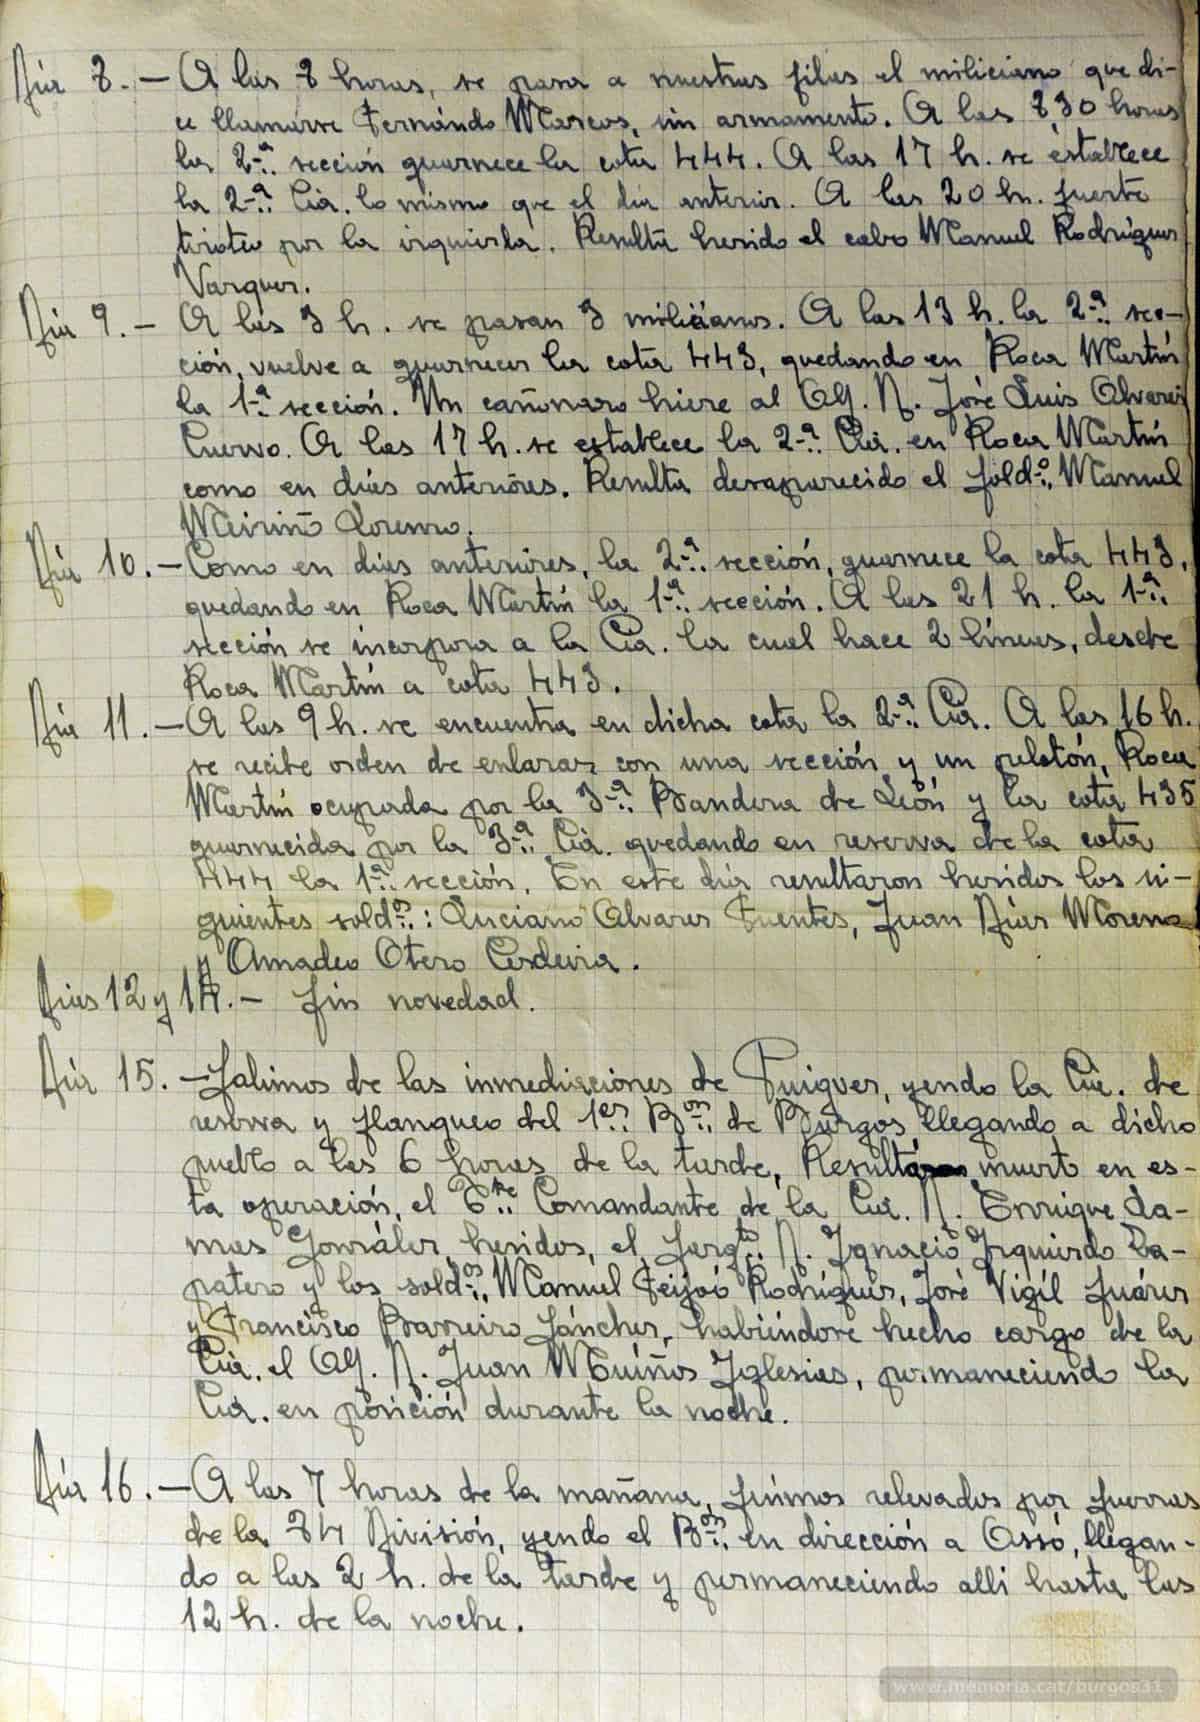 Día 8.- A las 8 horas, se pasa a nuestras filas el miliciano que di-
ce llamarse Fernándo Marcos, sin armamento. A las 8,30 horas
la 2ª sección guarnece la cota 444. A las 17 h. se establece
la 2ª Cía. lo mismo que el día anterior. A las 20 h. fuerte
tiroteo por la izquierda. Resulta herido el cabo Manuel Rodríguez
Vazquez.
Día 9.- A las 3 h. se pasan 3 milicianos. A las 13 h. la 2ª sec-
ción, vuelve a guarnecer la cota 443, quedando en Roca Martín
la 1ª sección. Un cañonazo hiere al Alf. D. José Luis Alvarez
Cuervo. A las 17 h. se establece la 2ª Cía. en Roca Martín
como en días anteriores. Resulta desaparecido el Soldº. Manuel
Meiriño Lorenzo.
Día 10.- Como en días anteriores, la 2ª sección, guarnece la cota 443,
quedando en Roca Martín la 1ª sección. A las 21 h. la 1ª
sección se incorpora a la Cía. la cual hace 2 líneas, desde
Roca Martín a cota 443.
Día 11.- A las 9 h. se encuentra en dicha cota la 2ª Cía. A las 16 h.
se recibe orden de enlazar con una sección y un pelotón, Roca
Martín ocupada por la 3ª Bandera de León y la cota 435
guarnecida por la 3ª Cía. quedando en reserva de la cota
444 la 1ª sección. En este día resultaron heridos los si-
guientes soldos.: Luciano Alvarez Fuentes, Juan Díaz Moreno
y Amadeo Otero Cerdeira.
Días 12 y 14.- Sin novedad.
Día 15.- Salimos de las inmediaciones de Puigver, yendo la Cía. de
reserva y flanqueo del 1er. Bon. de Burgos, llegando a dicho
pueblo a las 6 horas de la tarde, Resulta muerto en es-
ta operación, el Tte. Comandante de la Cía. D. Enrique La-
mas González, heridos, el Sargto. D. Ignacio Izquierdo Za-
patero y los soldos. Manuel Feijoó Rodríguez, José Vigil Suárez
y Francisco Barreiro Sánchez, habiéndose hecho cargo de la
Cía. el Alf. D. Juan Muíños Iglesias, permaneciendo la
Cía. en posición durante la noche.
Día 16.- A las 7 horas de la mañana, fuimos relevados por fuerzas
de la 84 División, yendo el Bon. en dirección a Ossó, llegan-
do a las 2 h. de la tarde y permaneciendo alli hasta las
12 h. de la noche.
www.memoria.cat/burgos31